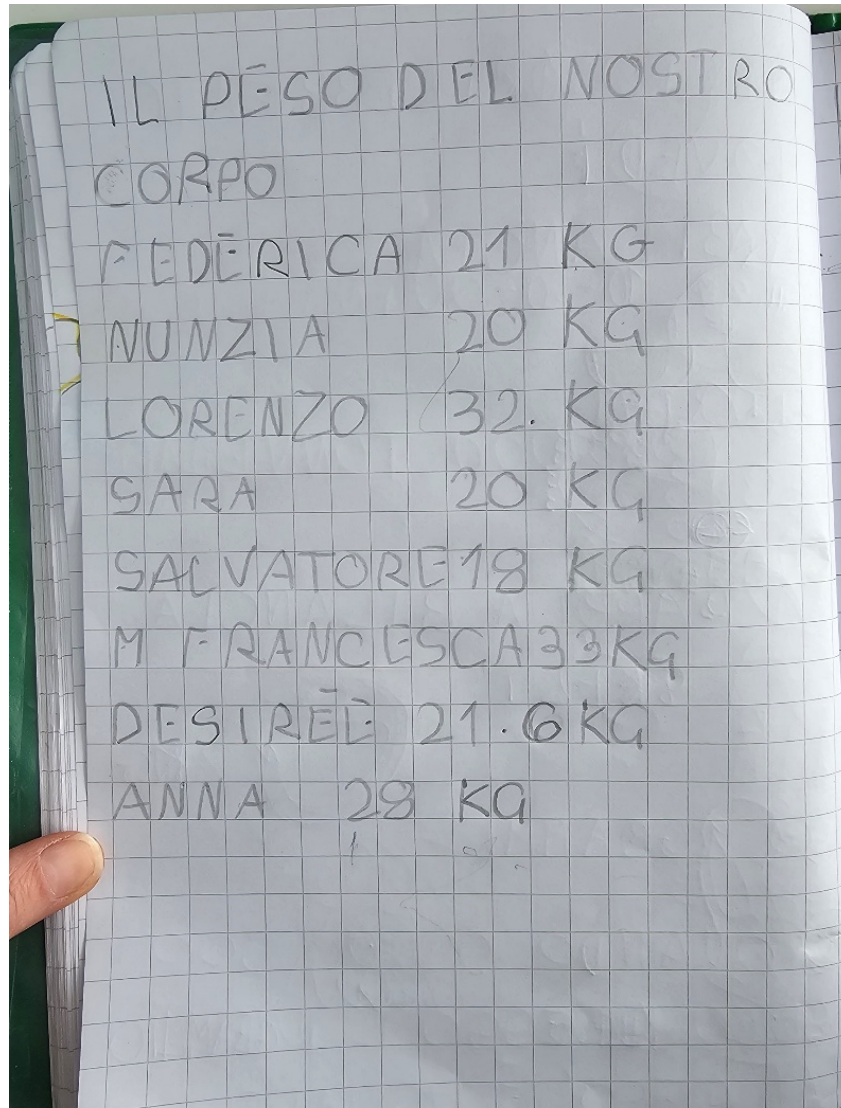 IL PESO DEL NOSTRO
CORPO
FEDERICA 21 KG
NUNZIA 20 KG
LORENZO 32. KG
SARA 20 KG
SALVATORE 18 KG
M FRANCESCA 33 KG
DESIREE 21.6 KG
ANNA 28 KG